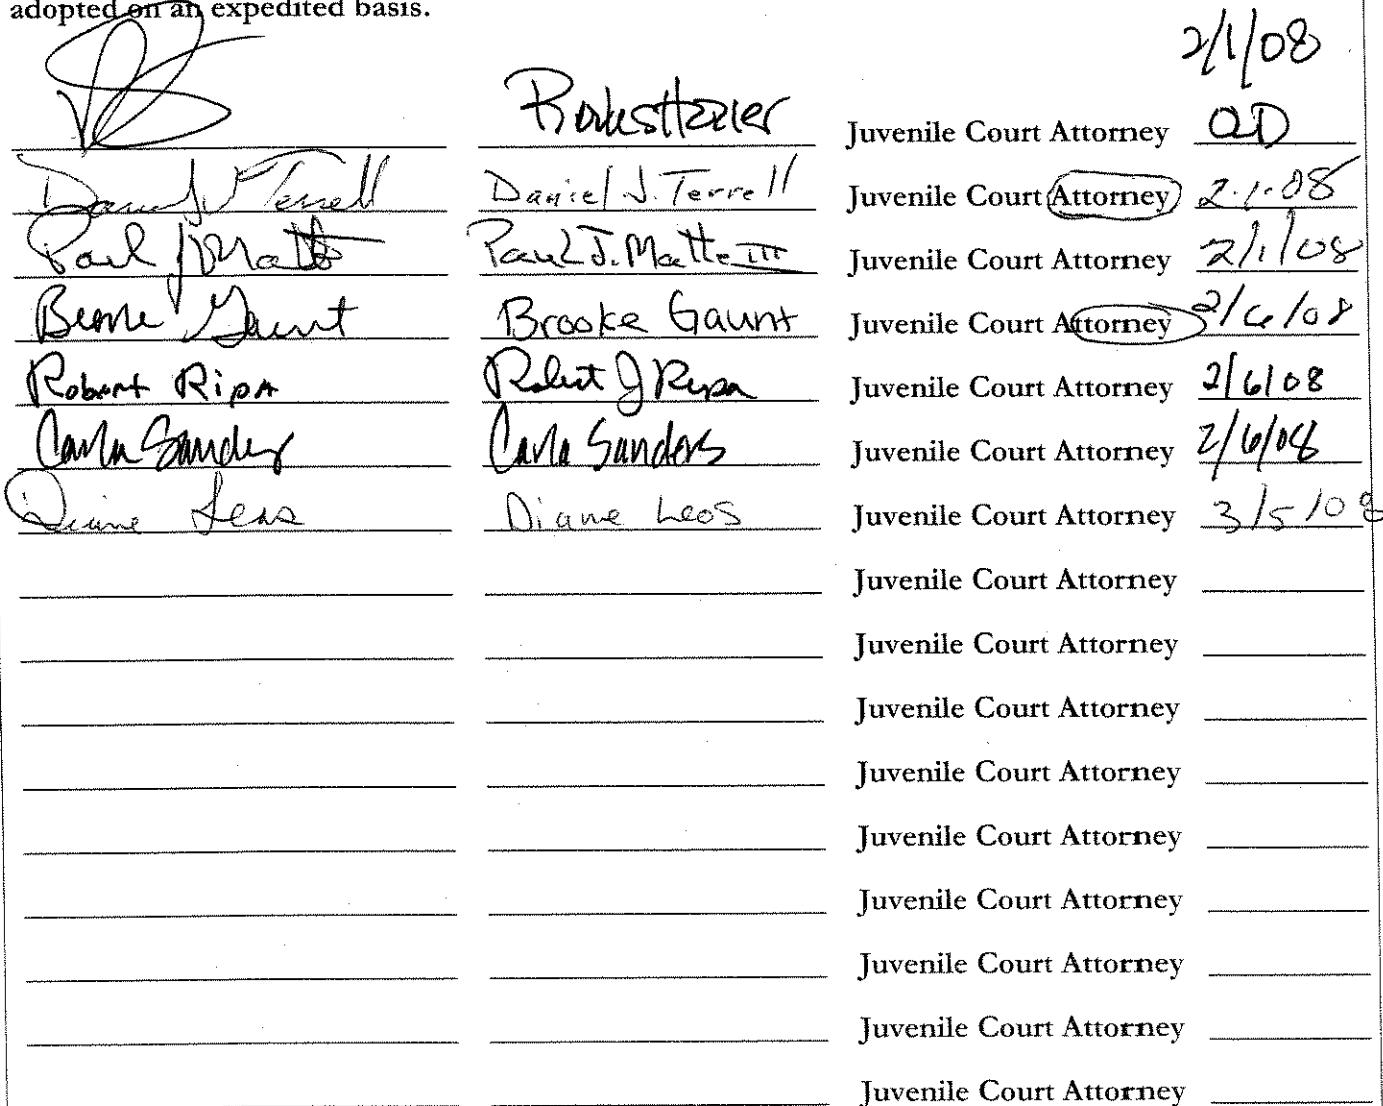 adopted on an expedited basis.
2/1/08
Juvenile Court Attorney
Daniel J. Terrell Daniel J. Terrell Juvenile Court Attorney 2.1.08
Paul J Matte Paul J. Matte III Juvenile Court Attorney 2/1/08
Brooke Gaunt Brooke Gaunt Juvenile Court Attorney 2/6/08
Robert Ripa Robert J Ripa Juvenile Court Attorney 2/6/08
Carla Sanders Carla Sanders Juvenile Court Attorney 2/6/08
Diane Leos Diane Leos Juvenile Court Attorney 3/5/08
Juvenile Court Attorney
Juvenile Court Attorney
Juvenile Court Attorney
Juvenile Court Attorney
Juvenile Court Attorney
Juvenile Court Attorney
Juvenile Court Attorney
Juvenile Court Attorney
Juvenile Court Attorney